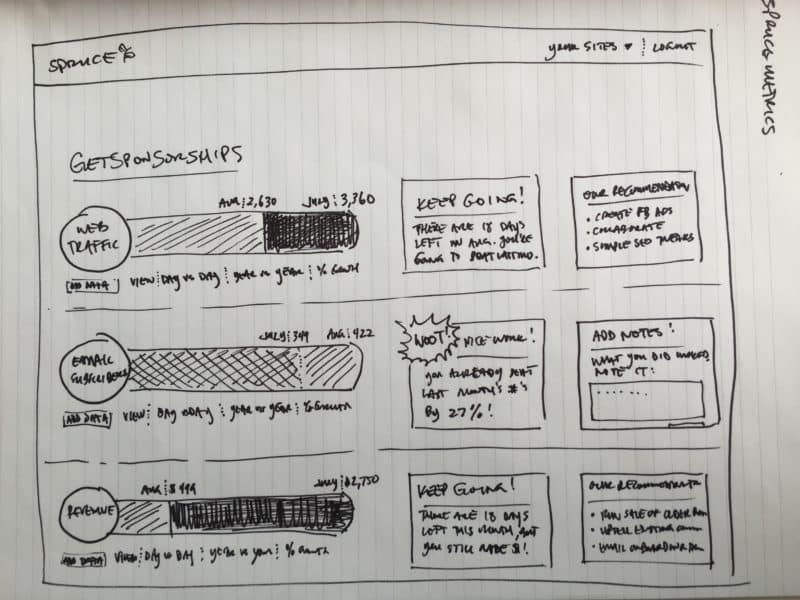 SPRUCE METRICS
SPRUCE%
YOUR SITES ▾ LOGOUT
GETSPONSORSHIPS
WEB
TRAFFIC
AUG 2,630
JULY 3,360
ADD DATA
VIEW DAY VS DAY YEAR VS YEAR % GROWTH
KEEP GOING!
THERE ARE 18 DAYS
LEFT IN AUG. YOU'RE
GOING TO BEAT LAST MO.
OUR RECOMMENDATION
• CREATE FB ADS
• COLLABORATE
• SIMPLE SEO TWEAKS
EMAIL
SUBSCRIBERS
JULY 344
AUG 422
ADD DATA
VIEW DAY VS DAY YEAR VS YEAR % GROWTH
WOOT!
NICE WORK!
YOU ALREADY BEAT
LAST MONTH'S #'S
BY 27%!
ADD NOTES!
WHAT YOU DID WORKED,
NOTE IT:
REVENUE
AUG
JULY $2,750
ADD DATA
VIEW DAY VS DAY YEAR VS YEAR % GROWTH
KEEP GOING!
THERE ARE 18 DAYS
LEFT THIS MONTH, BUT
YOU STILL MADE $!
OUR RECOMMENDATION
• RUN SALE OF OLDER
• UPSELL EXISTING
• EMAIL ONBOARDING